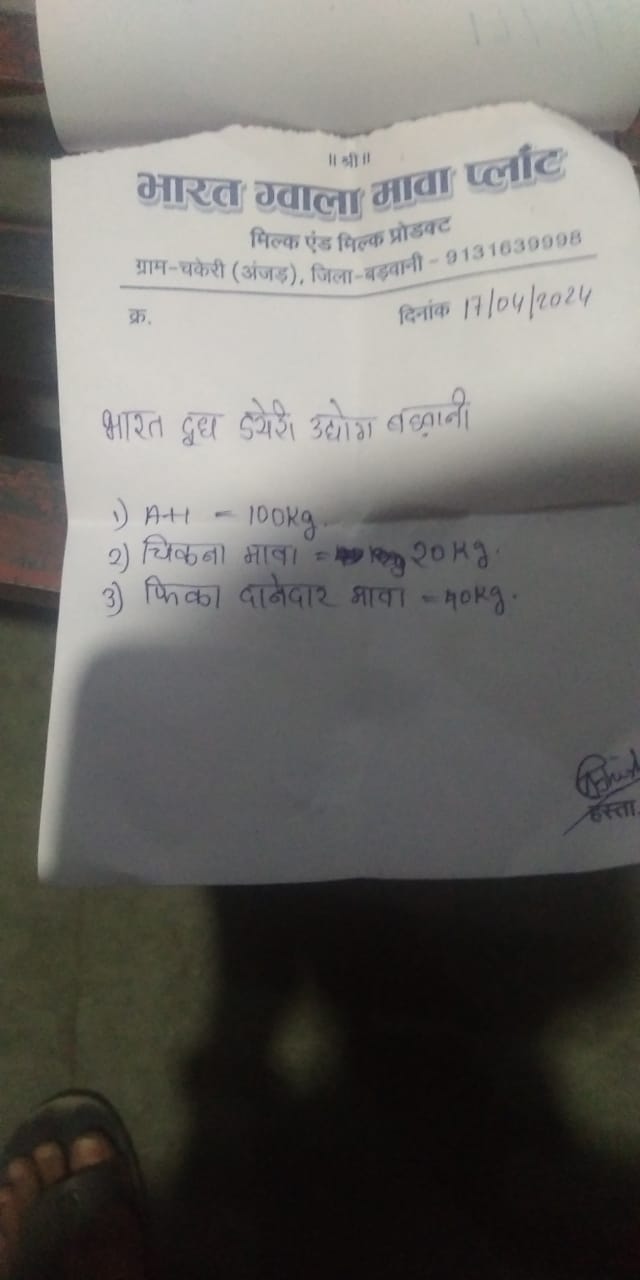 ॥ श्री ॥
भारत ग्वाला मावा प्लाँट
मिल्क एंड मिल्क प्रोडक्ट
ग्राम-चकेरी (अंजड़), जिला-बड़वानी - 9131639998
क्र. दिनांक 17/04/2024
भारत दूध डेयरी उद्योग बड़वानी
1) A+1 = 100kg.
2) चिकना मावा = 20kg.
3) फिका दानेदार मावा = 40kg.
हस्ता.